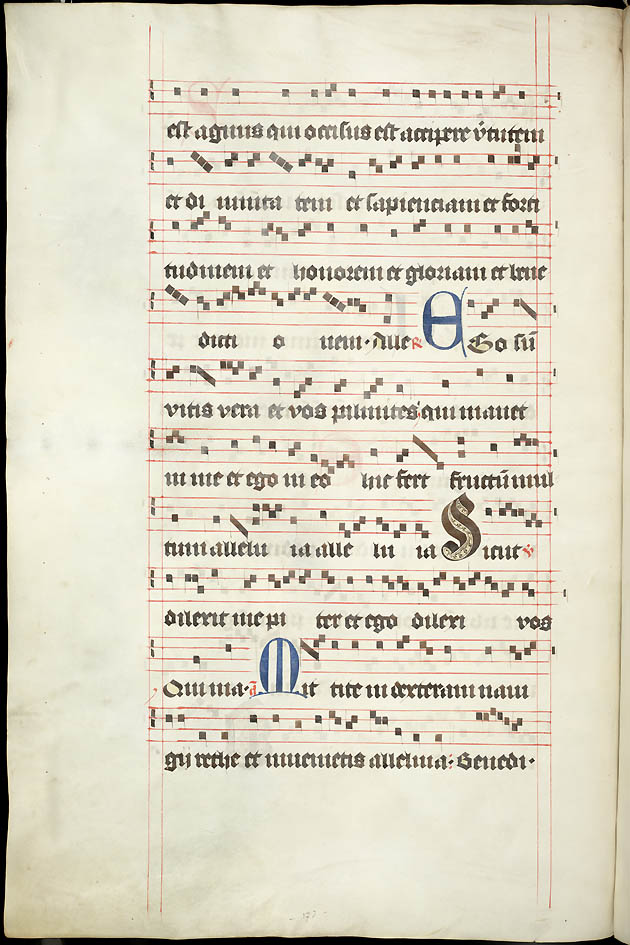 est agnus qui occisus est accipere v̄tutem
et di uinita tem et sapienciam et forti
tudinem et honorem et gloriam et bene
dicti o nem. Alle R Ego sū
vitis vera et vos palmites qui manet
in me et ego in eo hic fert fructū mul
tum allelu ia alle lu ia Sicut v
dilexit me pa ter et ego dilexi vos
Qui ma. a Mit tite in dexteram naui
gij rethe et inuenietis alleluia: Benedi.